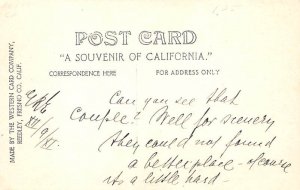 POST CARD
"A SOUVENIR OF CALIFORNIA."
CORRESPONDENCE HERE
FOR ADDRESS ONLY
MADE BY THE WESTERN CARD COMPANY,
REEDLEY, FRESNO CO., CALIF.
Can you see that
Couple? Well for scenery
they could not found
a better place - of course
its a little hard -